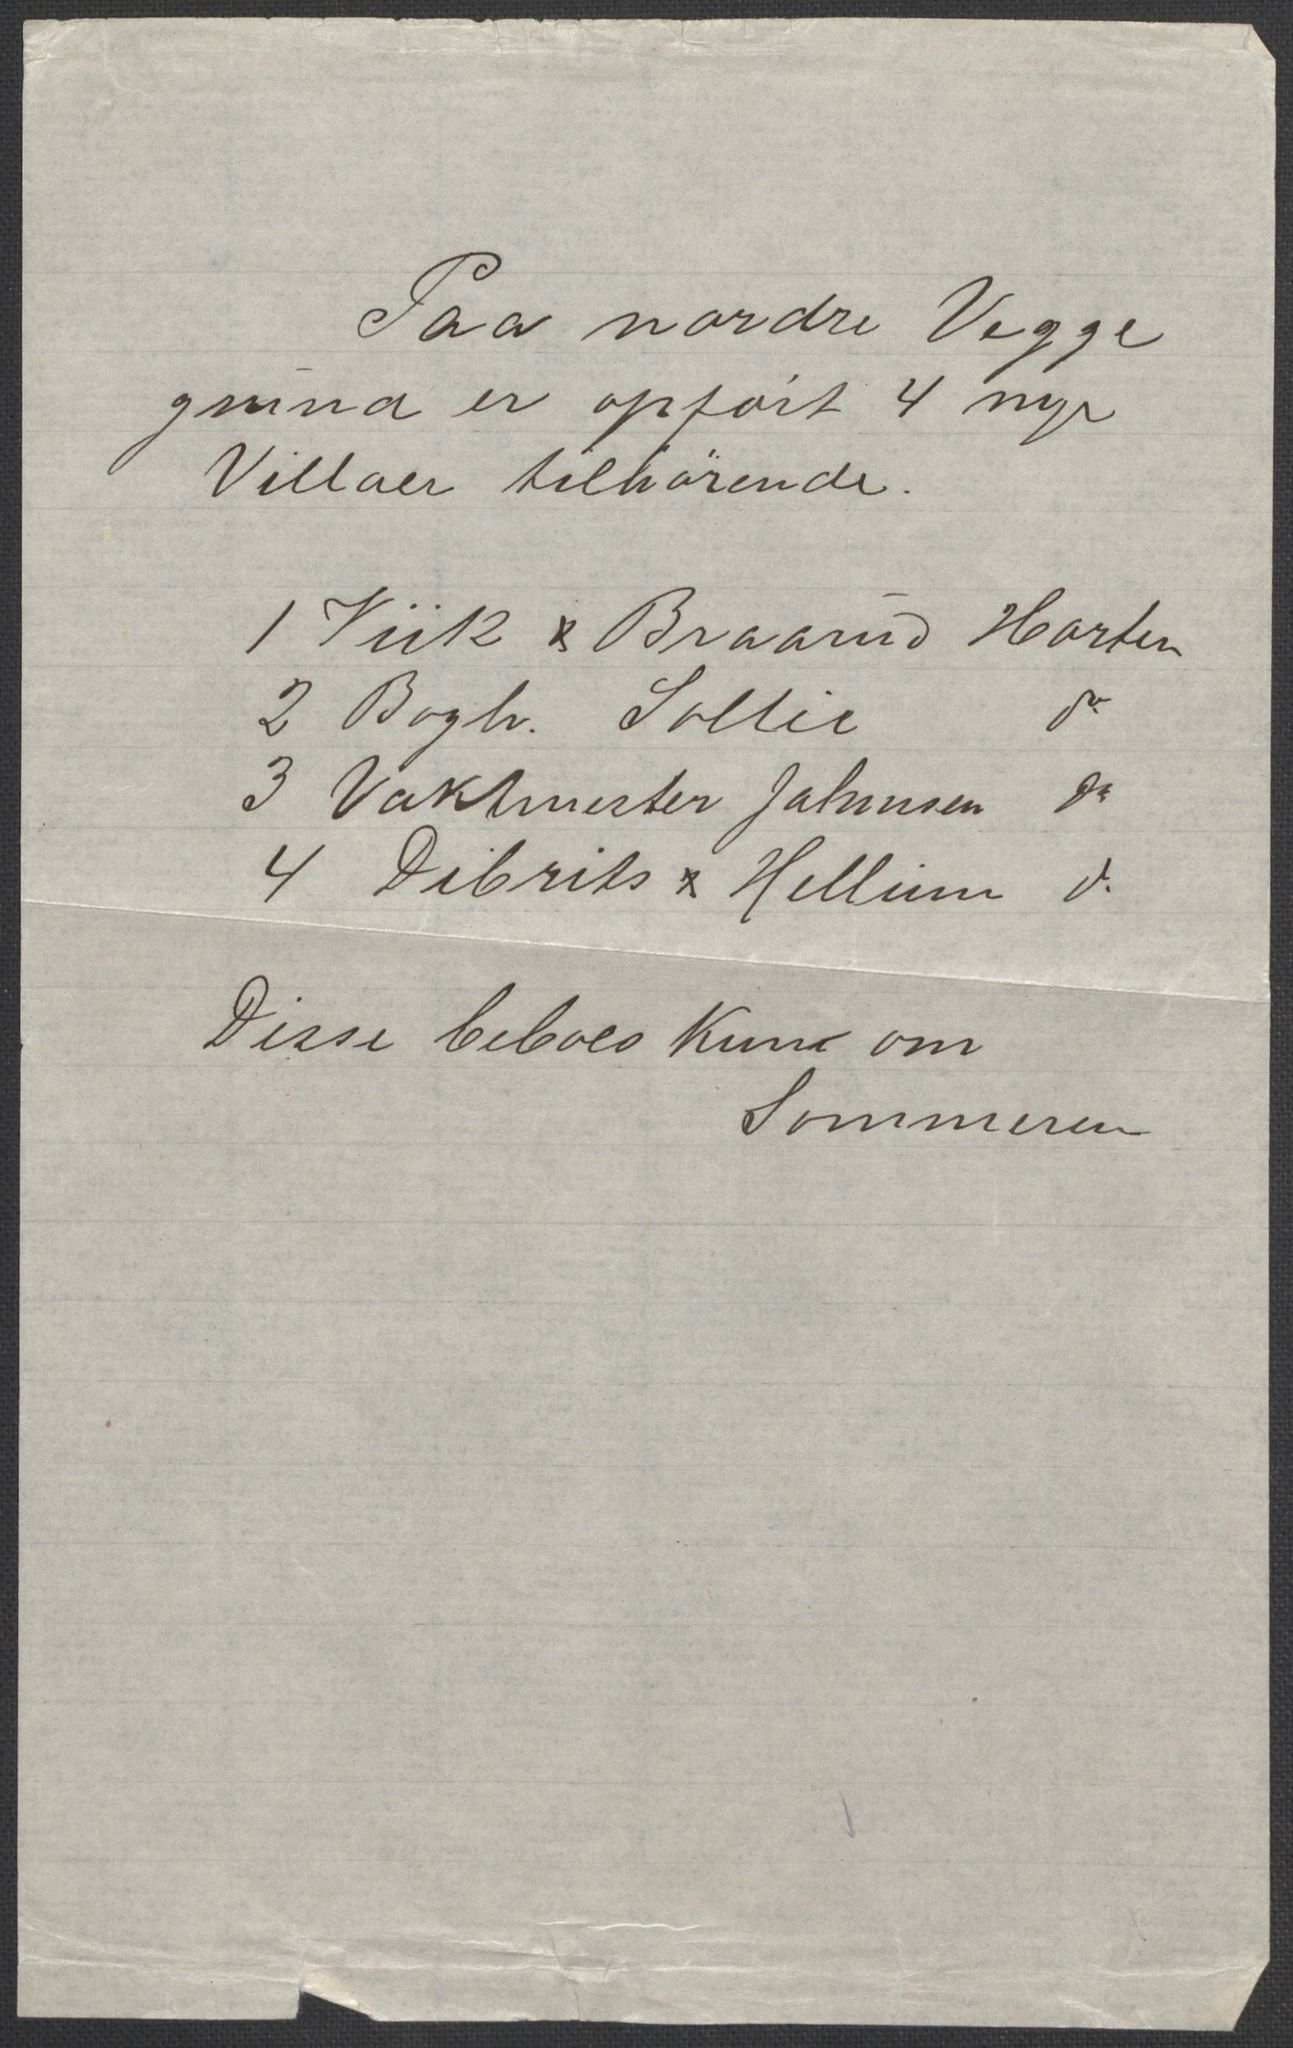 Paa nordre Vegge
grund er opført 4 nye
Villaer tilhörende.
1 Viik & Braarud Horten
2 Bogh. Soltie do
3 Vaktmester Johnsen do
4 Dibrits & Hellum do
Disse beboes kun om
Sommeren